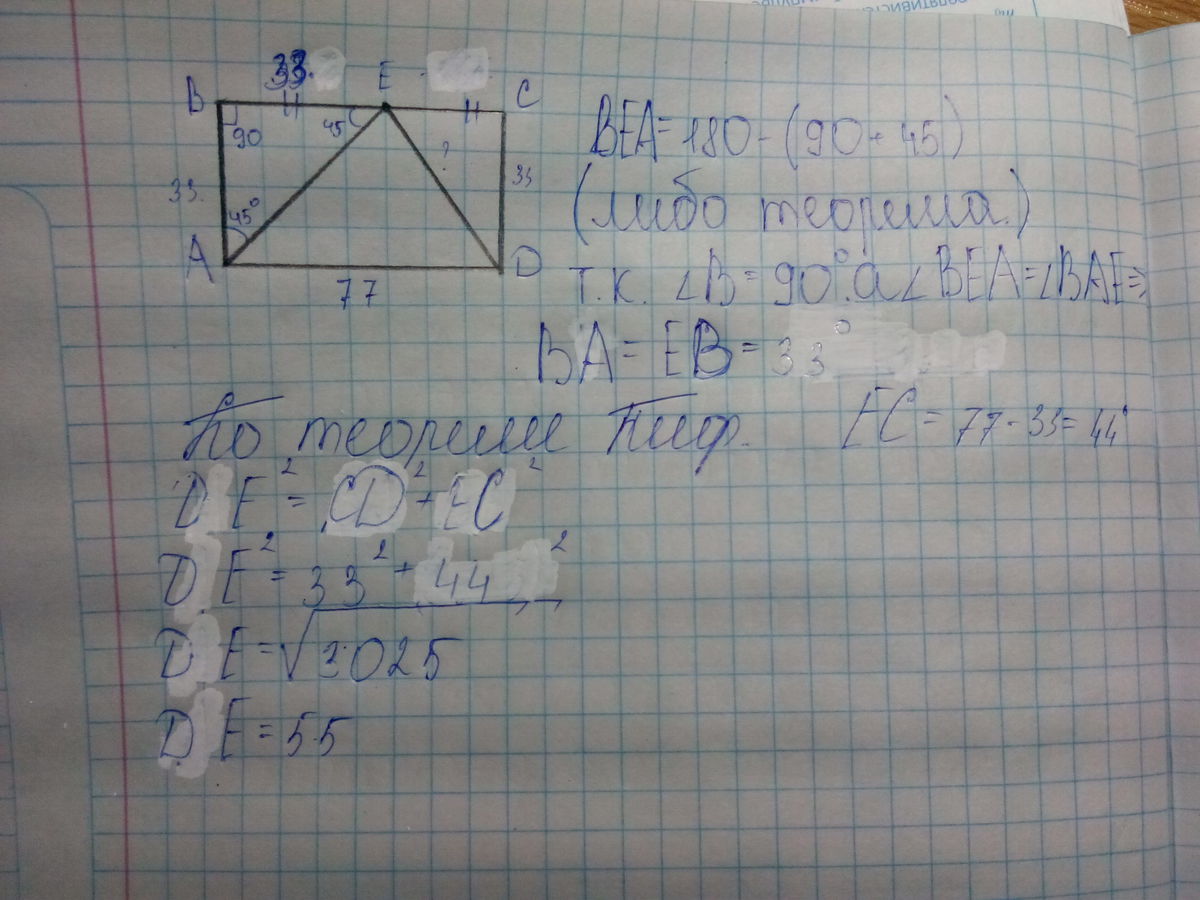 33
B E C
90 45 ? 33
33. 45°
A D
77
BEA = 180 - (90 + 45)
(либо теорема.)
т.к. ∠B = 90°. а ∠BEA = ∠BAE ⇒
BA = EB = 33°
По теореме Пиф. EC = 77 - 33 = 44
DE² = CD² + EC²
DE² = 33² + 44²
DE = √3025
DE = 55